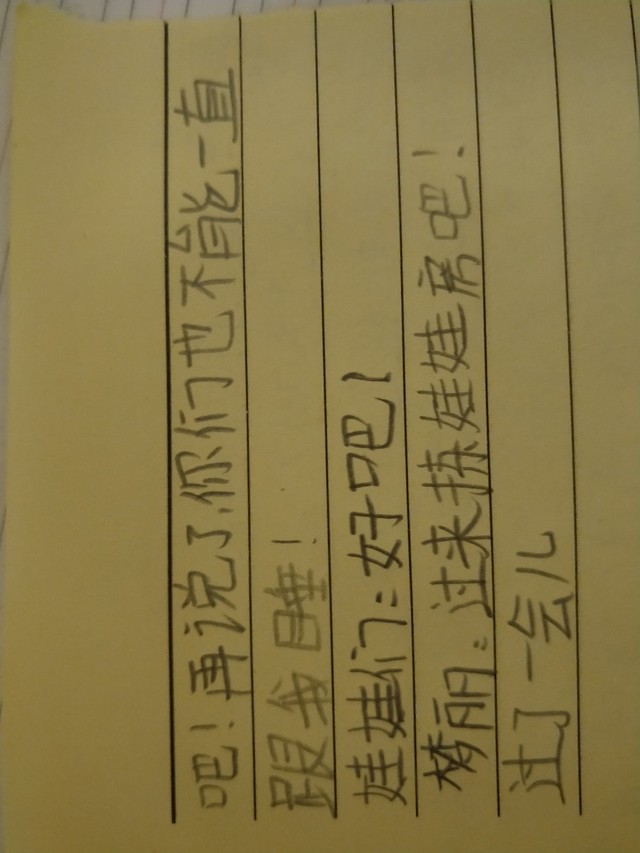 吧！再说了,你们也不能一直
跟我睡！
娃娃们：好吧！
梦丽：过来拣娃娃房吧！
过了一会儿